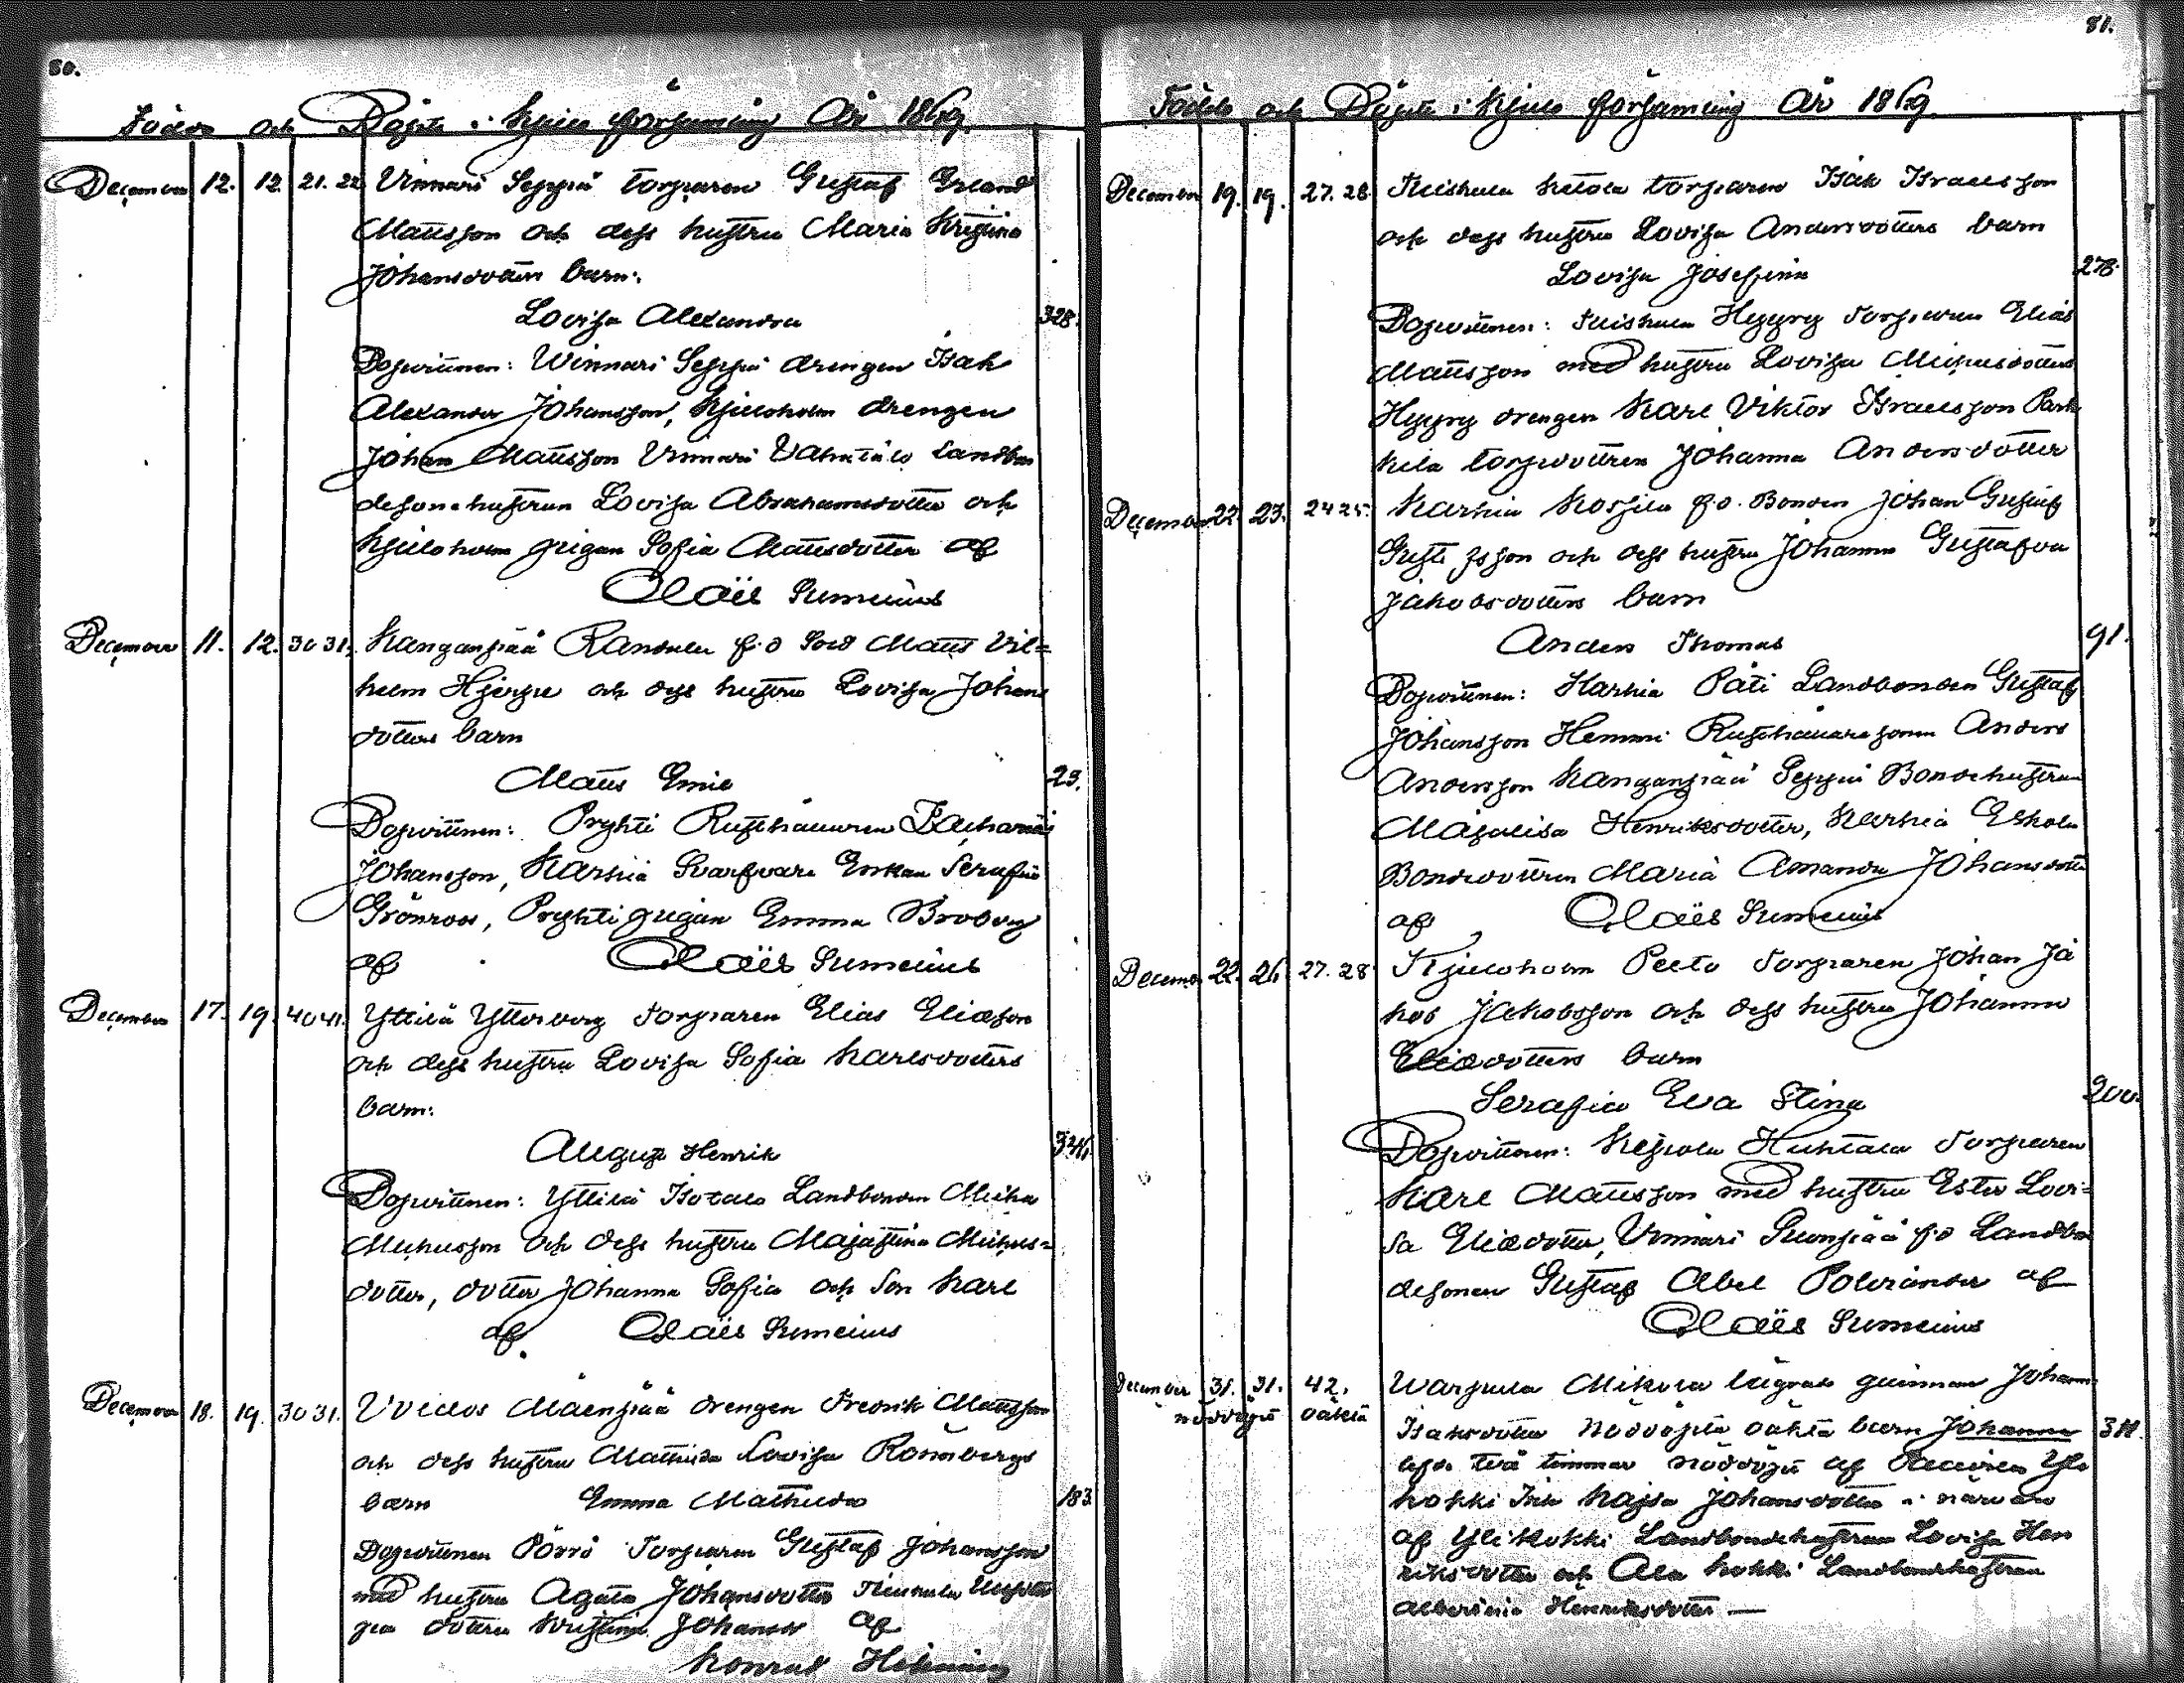 80.
Födde och Döpte i Kjulo församling År 1869.
December 12. 12 21. 22. Vinnari Seppä torparen Gustaf Erland
Mattsson och dess hustru Maria Kristina
Johansdotters barn:
Lovisa Alexandra 328.
Dopvittnen: Winnari Seppä drengen Isak
Alexander Johansson, Kjuloholm drengen
Johan Mattsson Vinnari Landbon
desonehustrun Lovisa Abrahamsdotter och
Kjuloholm pigan Sofia Mattsdotter af
Claës Sumelius
December 11. 12. 30 31. Kanganpää Randula f.d Sold Matts Vil=
helm Hjerpe och dess hustru Lovisa Johans
dotters barn
Matts Emil 23.
Dopvittnen: Pryhti Rusthållaren Zacharias
Johansson, Karhia Svarfvare Enkan Serafia
Grönroos, Pryhti pigan Emma Broberg
af Claës Sumelius
December 17. 19. 40 41. Yttilä Ytterberg Torparen Elias Eliasson
och dess hustru Lovisa Sofia Karlsdotters
barn:
August Henrik
Dopvittnen: Yttilä Isotalo Landbonden Micha
Michusson och dess hustru Majastina Michus=
dotter, dotter Johanna Sofia och Son Karl
af Claës Sumelius
December 18. 19. 30 31. Voitos Mäenpää drengen Fredrik Mattsson
och dess hustru Mathilda Lovisa Rosenbergs
barn Emma Mathilda 183.
Dopvittnen Pörrö Torparen Gustaf Johansson
med hustru Agata Johansdotter
dottren Kristina Johansd af
Konrad
81.
Födde och Döpte i Kjulo församling År 1869.
December 19. 19. 27. 28. Ketola torparen Isak Israelsson
och dess hustru Lovisa Andersdotters barn
Lovisa Josefina 278.
Dopvittnen: Hyyry Torparen Elias
Mattsson med hustru Lovisa Michusdotter
Hyyry drengen Karl Viktor Israelsson
torpdottren Johanna Andersdotter
December 22. 23. 24 25. Karhia f.d. Bonden Johan Gustaf
Gustafsson och dess hustru Johanna Gustafva
Jakobsdotters barn
Anders Thomas 91.
Dopvittnen: Karhia Päti Landbonden Gustaf
Johansson Hemmi Rusthållaresonen Anders
Andersson Kanganpää Seppä Bondehustrun
Majalisa Henriksdotter, Karhia Eskola
Bondedottren Maria Amanda Johansdotter
af Claës Sumelius
December 22. 26. 27. 28. Kjuloholm Peeto Torparen Johan Ja
kob Jakobsson och dess hustru Johanna
Eliædotters barn
Serafia Eva Stina 200.
Dopvittnen: Kepola Huhtala Torparen
Karl Mattsson med hustru Ester Lovi=
sa Eliædotter, Vinnari Suonpää f.d Landbon
desonen Gustaf Abel Polviander af
Claës Sumelius
December 31. 31. 42. Warpula Mikola lägrade quinnan Johanna
nöddöpte oäkta Isaksdotter Nöddöpta oäkta barn Johanna 311.
två timmar nöddöpt af Yli
kokki Kajsa Johansdotter i närvaro
af Ylikokki Landbondehustrun Lovisa Hen
riksdotter och Ala kokki Landbondehustrun
Albertina Henriksdotter —